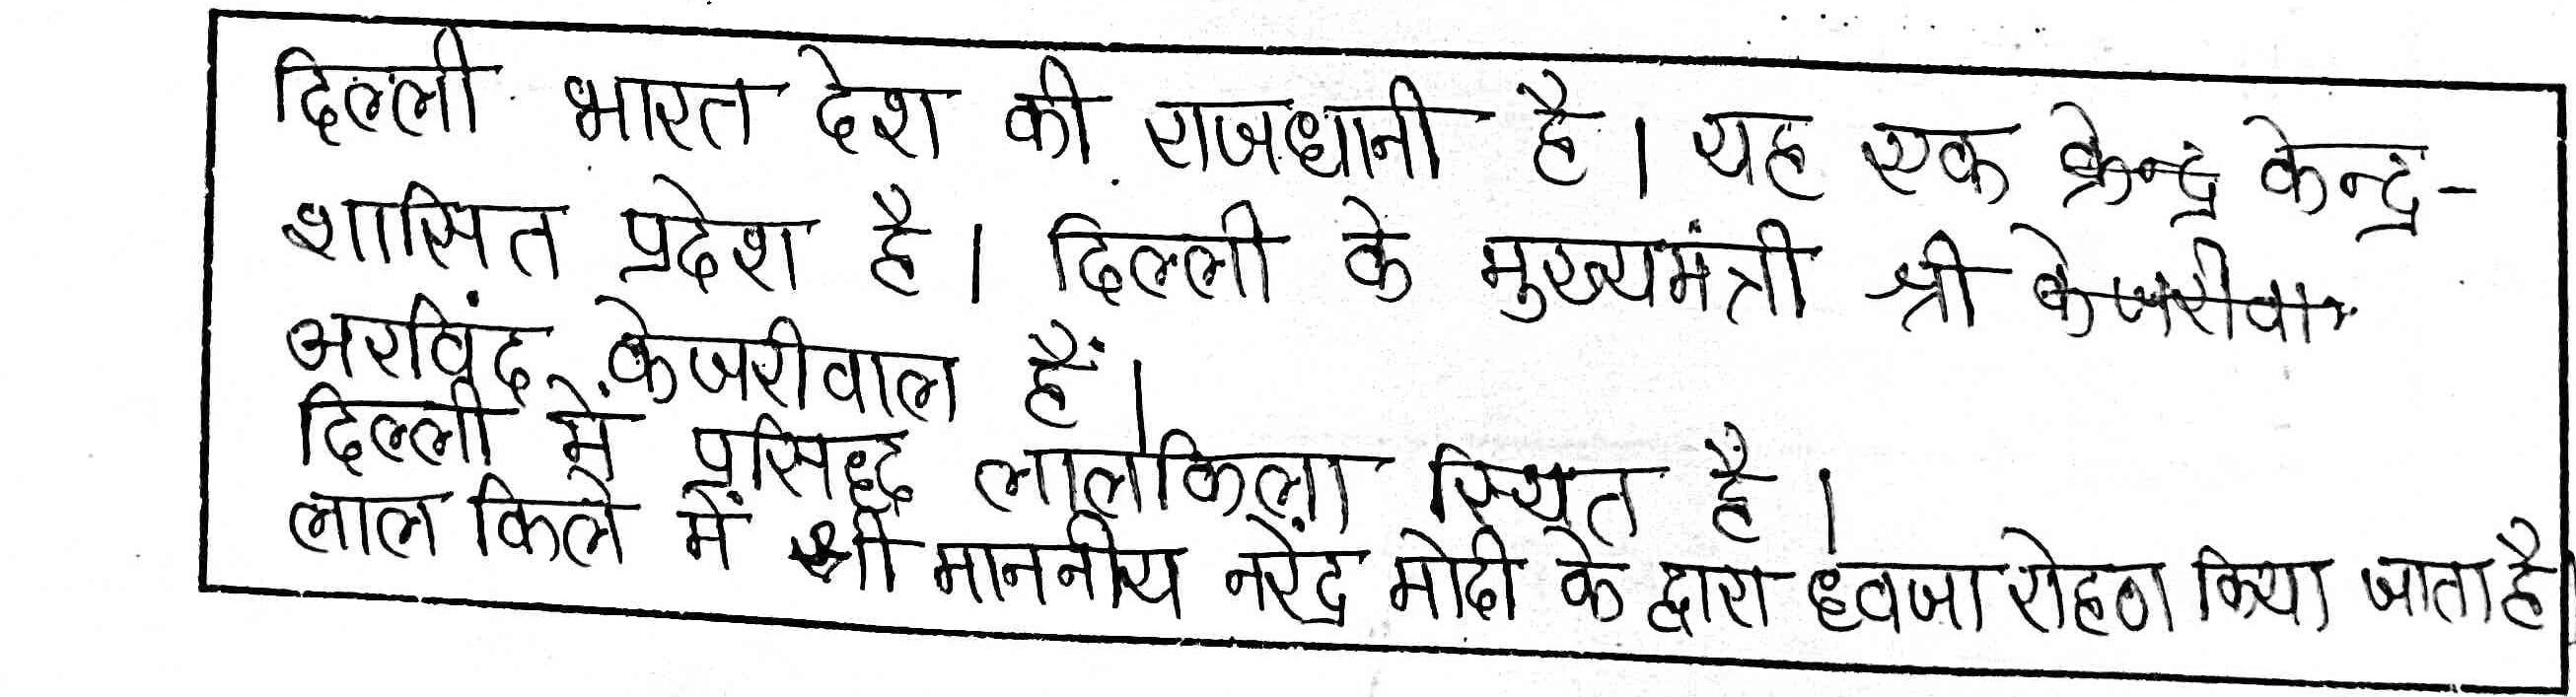 दिल्ली भारत देश की राजधानी है। यह एक केन्द्र केन्द्र-
शासित प्रदेश है। दिल्ली के मुख्यमंत्री श्री केजरीवा
अरविंद केजरीवाल हैं।
दिल्ली में प्रसिद्ध लालकिला स्थित है।
लाल किले में श्री माननीय नरेंद्र मोदी के द्वारा ध्वजा रोहण किया जाता है